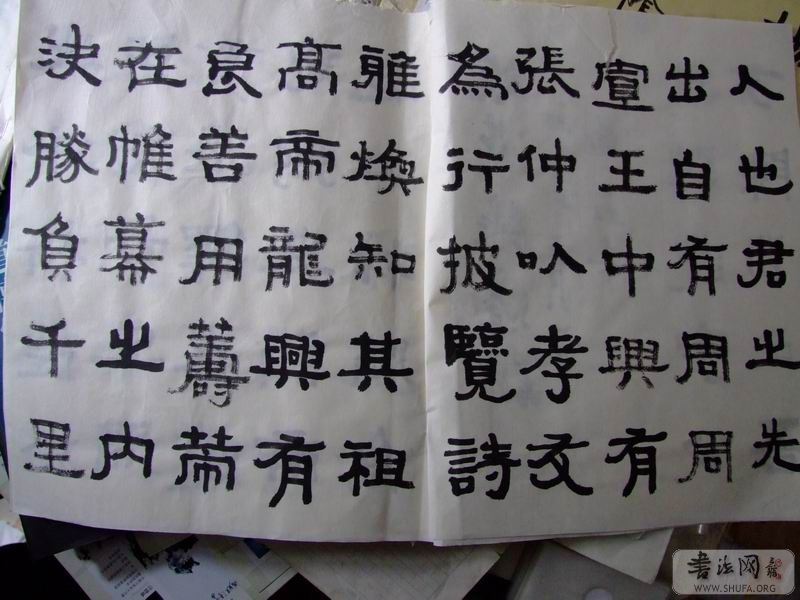 人也君之先
出自有周周
宣王中興有
張仲㕥孝友
為行披覽詩
雅煥知其祖
高帝龍興有
良善用籌策
在帷幕之內
決勝負千里
書法网
WWW.SHUFA.ORG